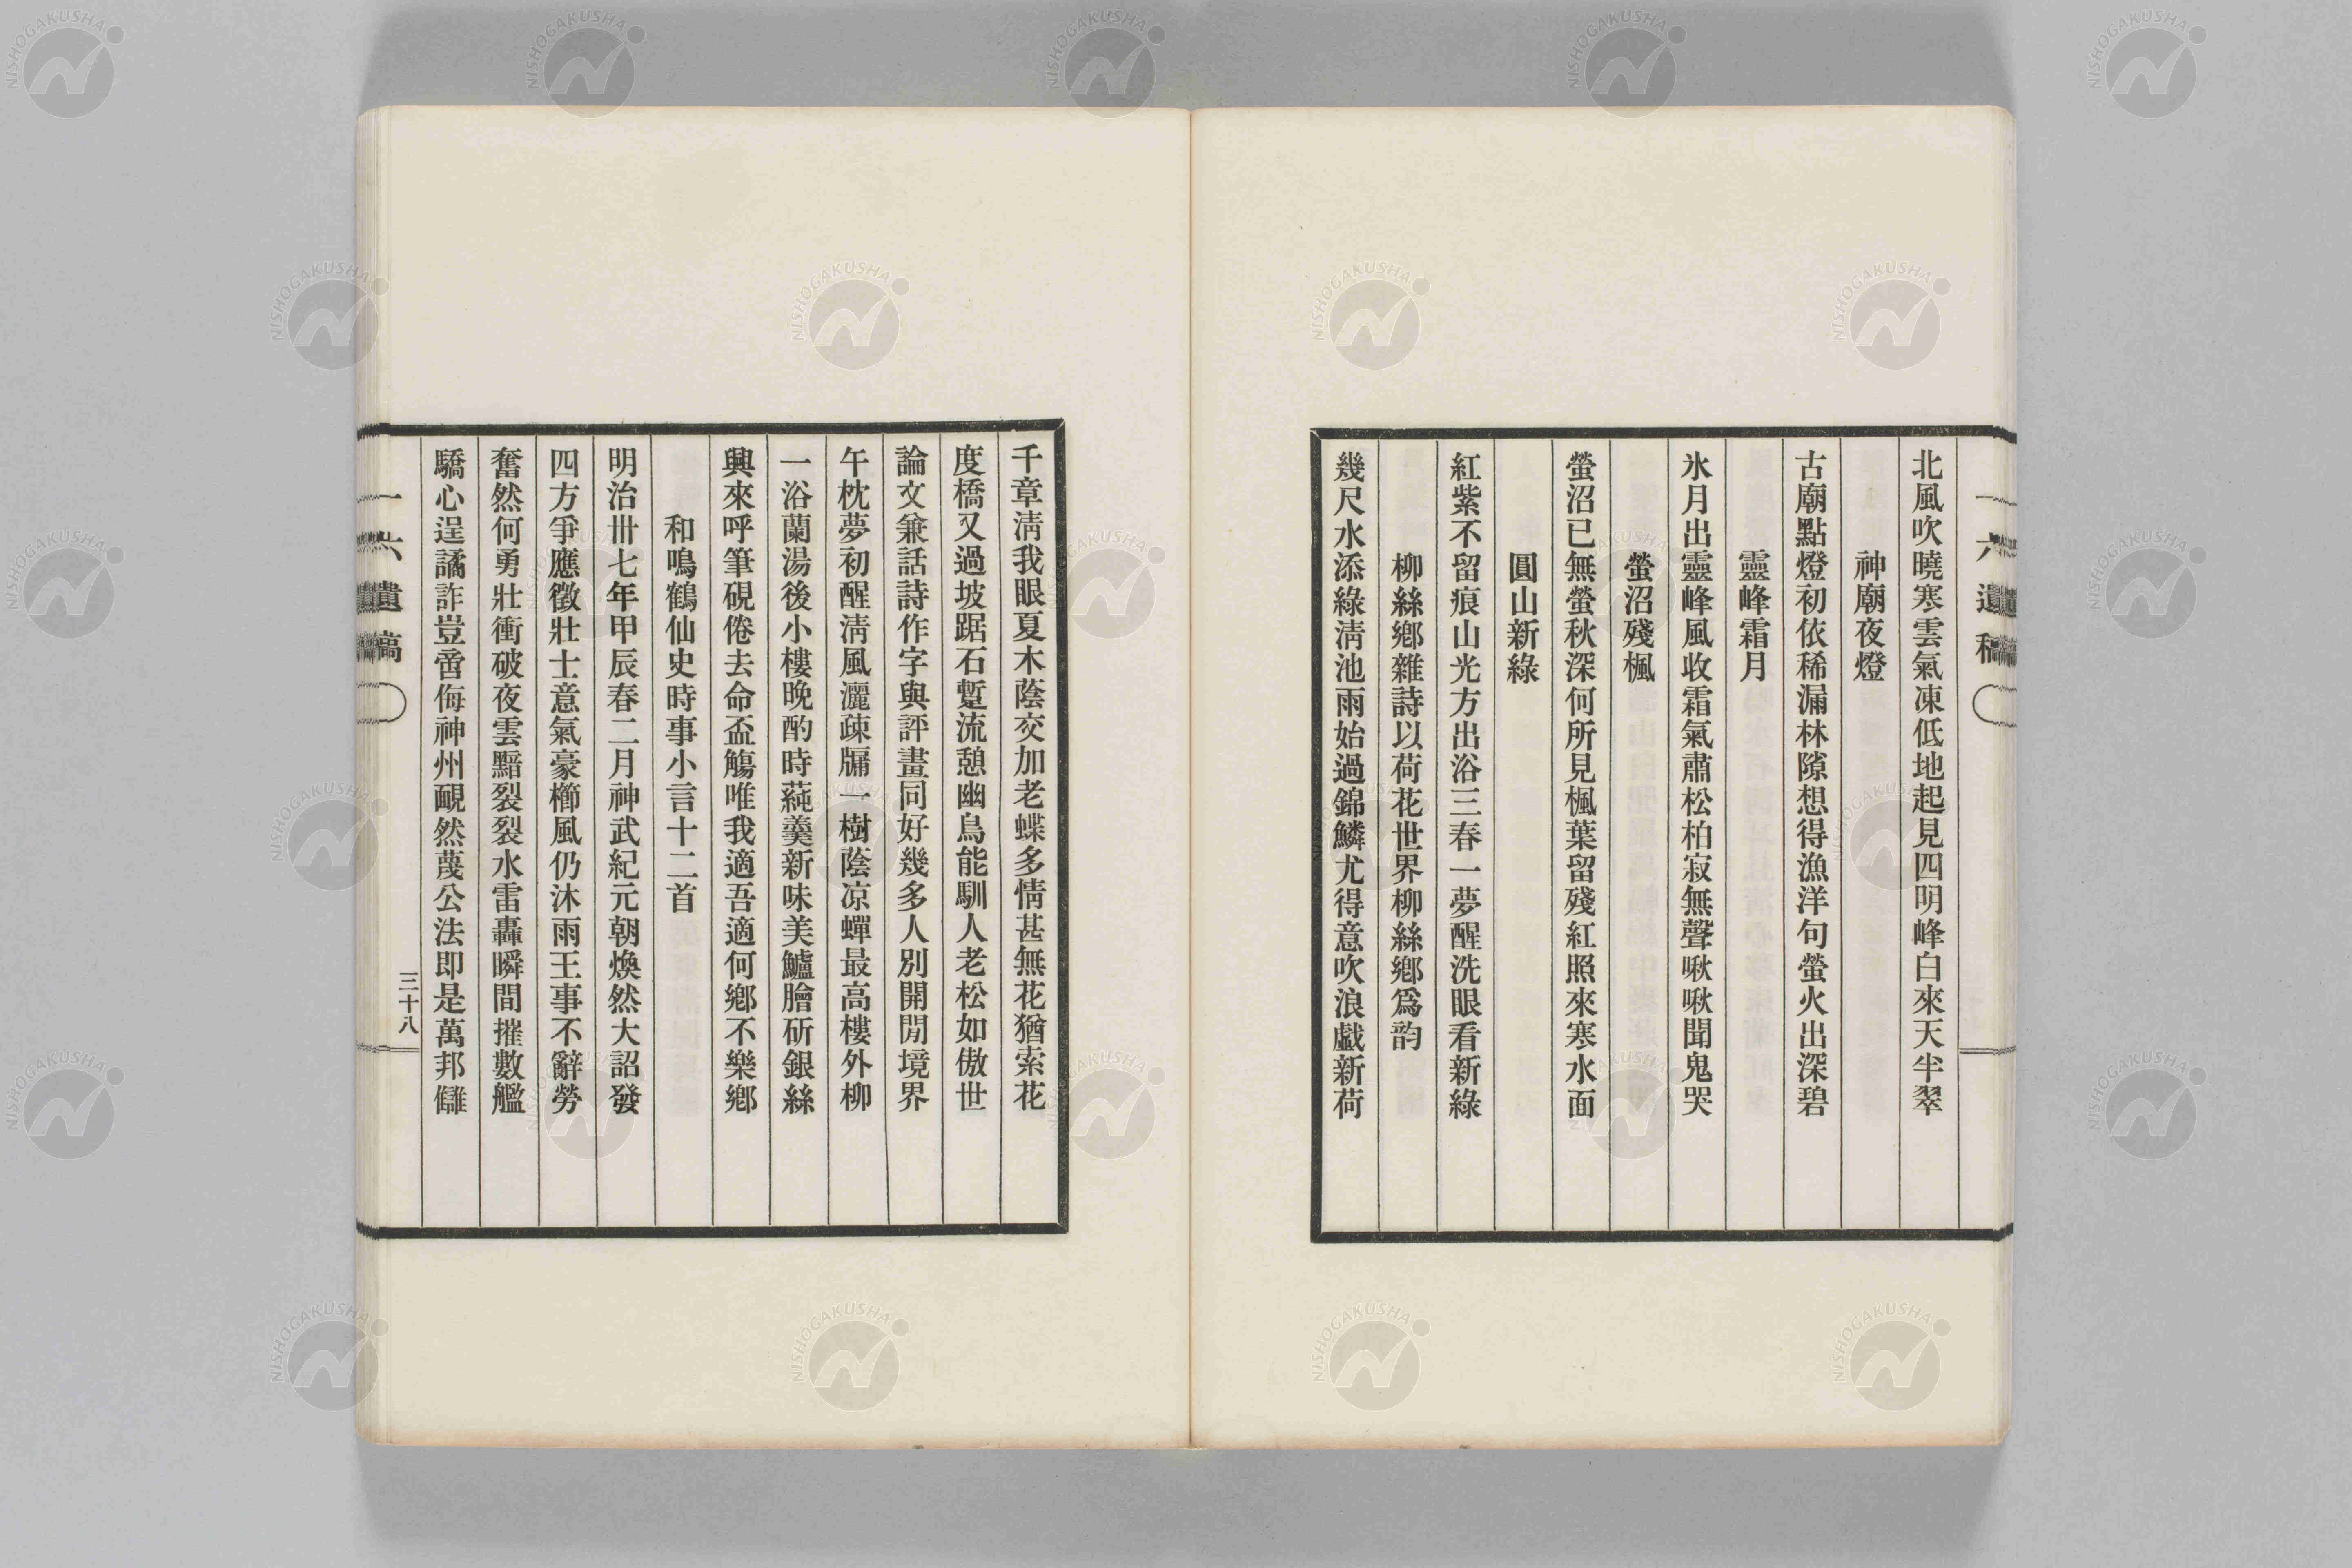 一六遺稿
北風吹曉寒雲氣凍低地起見四明峰白來天半翠
神廟夜燈
古廟點燈初依稀漏林隙想得漁洋句螢火出深碧
靈峰霜月
氷月出靈峰風收霜氣肅松柏寂無聲啾啾聞鬼哭
螢沼殘楓
螢沼已無螢秋深何所見楓葉留殘紅照來寒水面
圓山新綠
紅紫不留痕山光方出浴三春一夢醒洗眼看新綠
柳絲鄉雜詩以荷花世界柳絲鄉爲韵
幾尺水添綠淸池雨始過錦鱗尤得意吹浪戲新荷
千章淸我眼夏木蔭交加老蝶多情甚無花猶索花
度橋又過坡踞石蹔流憩幽鳥能馴人老松如傲世
論文兼話詩作字與評畫同好幾多人別開閒境界
午枕夢初醒淸風灑疎牖一樹蔭凉蟬最高樓外柳
一浴蘭湯後小樓晚酌時蒓羹新味美鱸膾斫銀絲
興來呼筆硯倦去命盃觴唯我適吾適何鄉不樂鄉
和鳴鶴仙史時事小言十二首
明治卅七年甲辰春二月神武紀元朝煥然大詔發
四方爭應徵壯士意氣豪櫛風仍沐雨王事不辭勞
奮然何勇壯衝破夜雲黯裂裂水雷轟瞬間摧數艦
驕心逞譎詐豈啻侮神州靦然蔑公法即是萬邦讎
一六遺稿
三十八
NISHOGAKUSHA